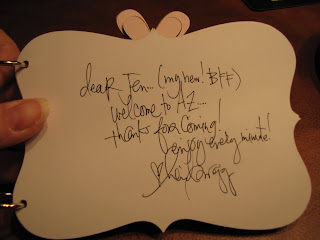 dear Jen... (my new! BFF)
welcome to AZ...
thanks for coming!
enjoy every minute!